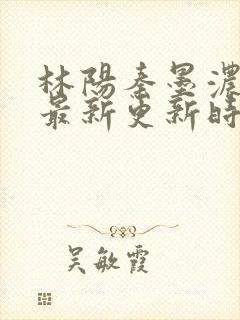 林陽秦墨濃
最新更新時
吴敏霞